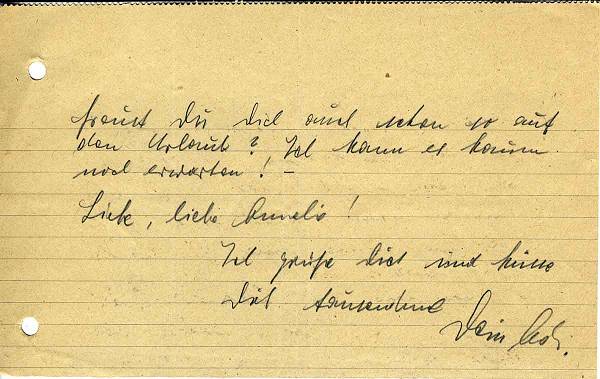 freust Du Dich auch schon so auf
den Urlaub? Ich kann es kaum
noch erwarten! –
Liebe, liebe Annelie!
Ich grüße Dich und küsse
Dich tausendmal
Dein